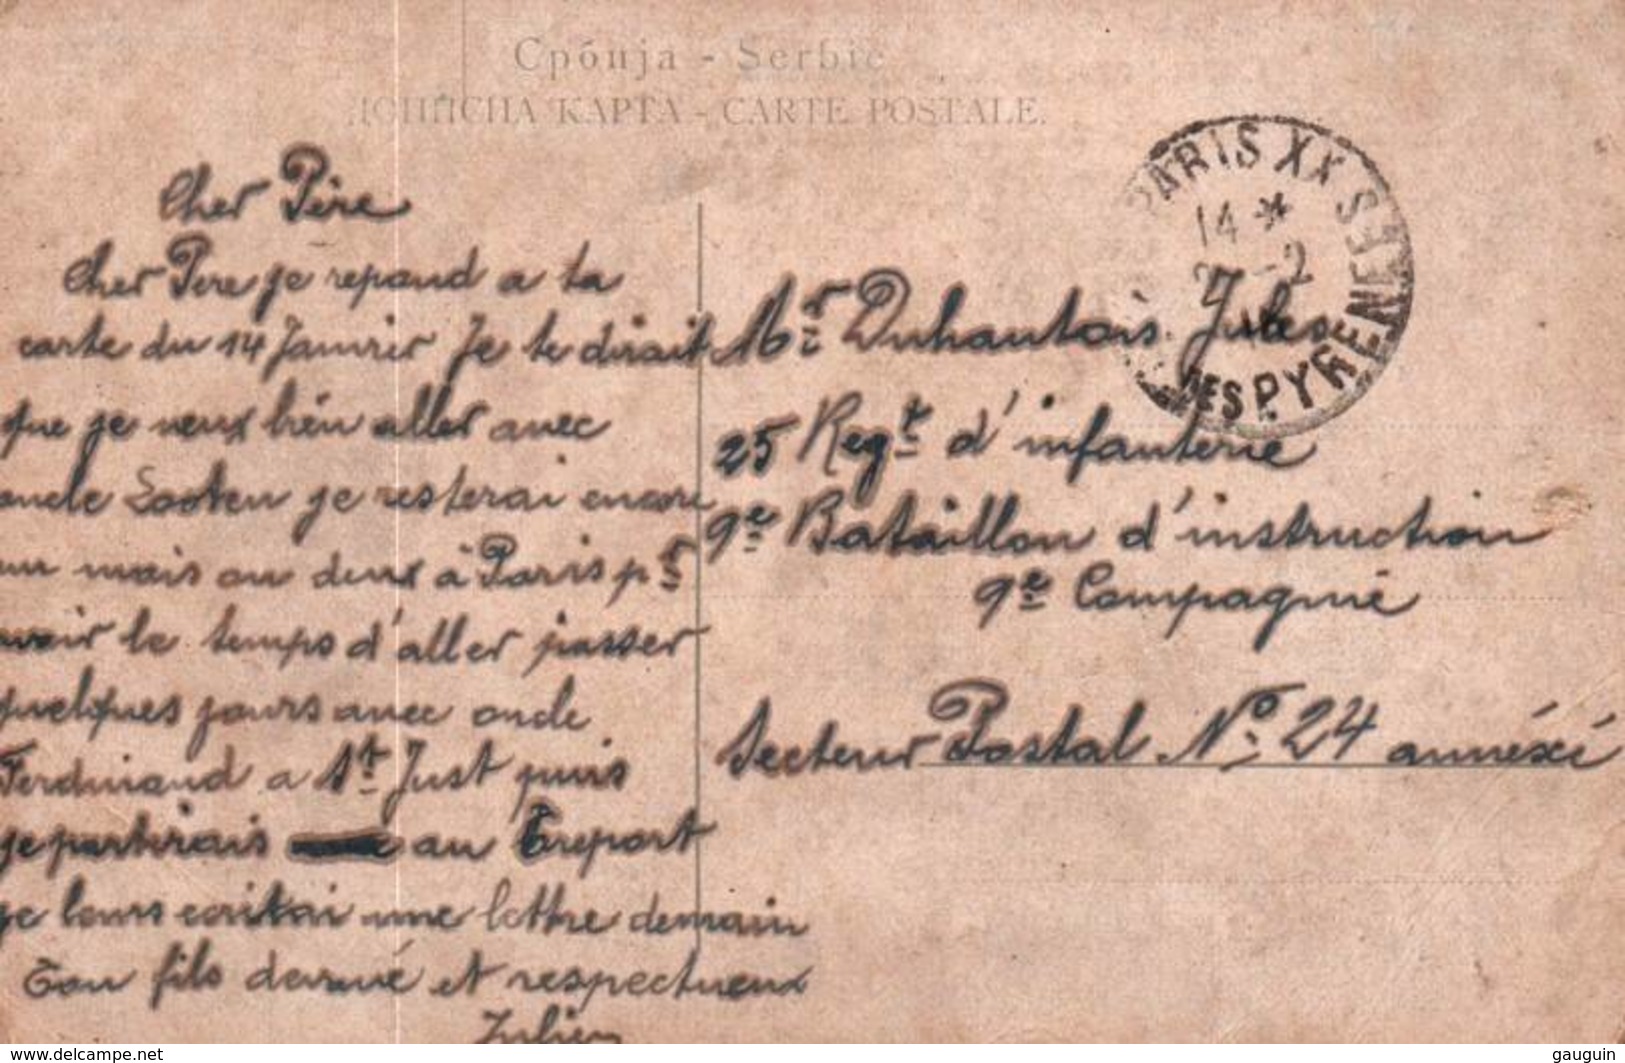 Србија - Serbie
КАРТА - CARTE POSTALE.
PARIS XX
14 *
-2
DES PYRENEES
Cher Père
Cher Pere je repond a ta
carte du 14 Janvier Je te dirait
que je veux bien aller avec
oncle Looten je resterai encore
un mois ou deux à Paris pr
avoir le temps d'aller passer
quelques jours avec oncle
Ferdinand a St Just puis
je partirais au Treport
je leurs ecritai une lettre demain
Ton fils devoué et respectueux
Julien
Mr Duhautois Jules
25 Regt d'infanterie
9e Bataillon d'instruction
9e Compagnie
Secteur Postal No 24 annéxé
Delcampe.net
gauguin